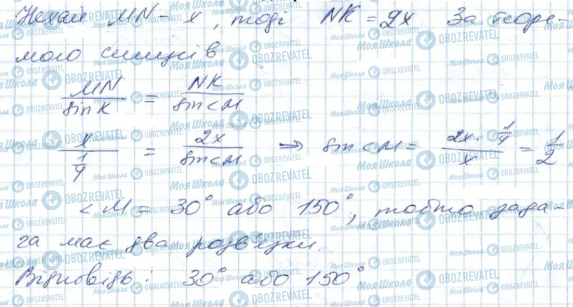 Нехай MN - x, тоді NK = 2x За теоре-
мою синусів
MN/sin K = NK/sin<M
x/(1/4) = 2x/sin<M → sin<M = (2x · 1/4)/x = 1/2
<M = 30° або 150°, тобто зада-
ча має два розв'язки.
Відповідь: 30° або 150°